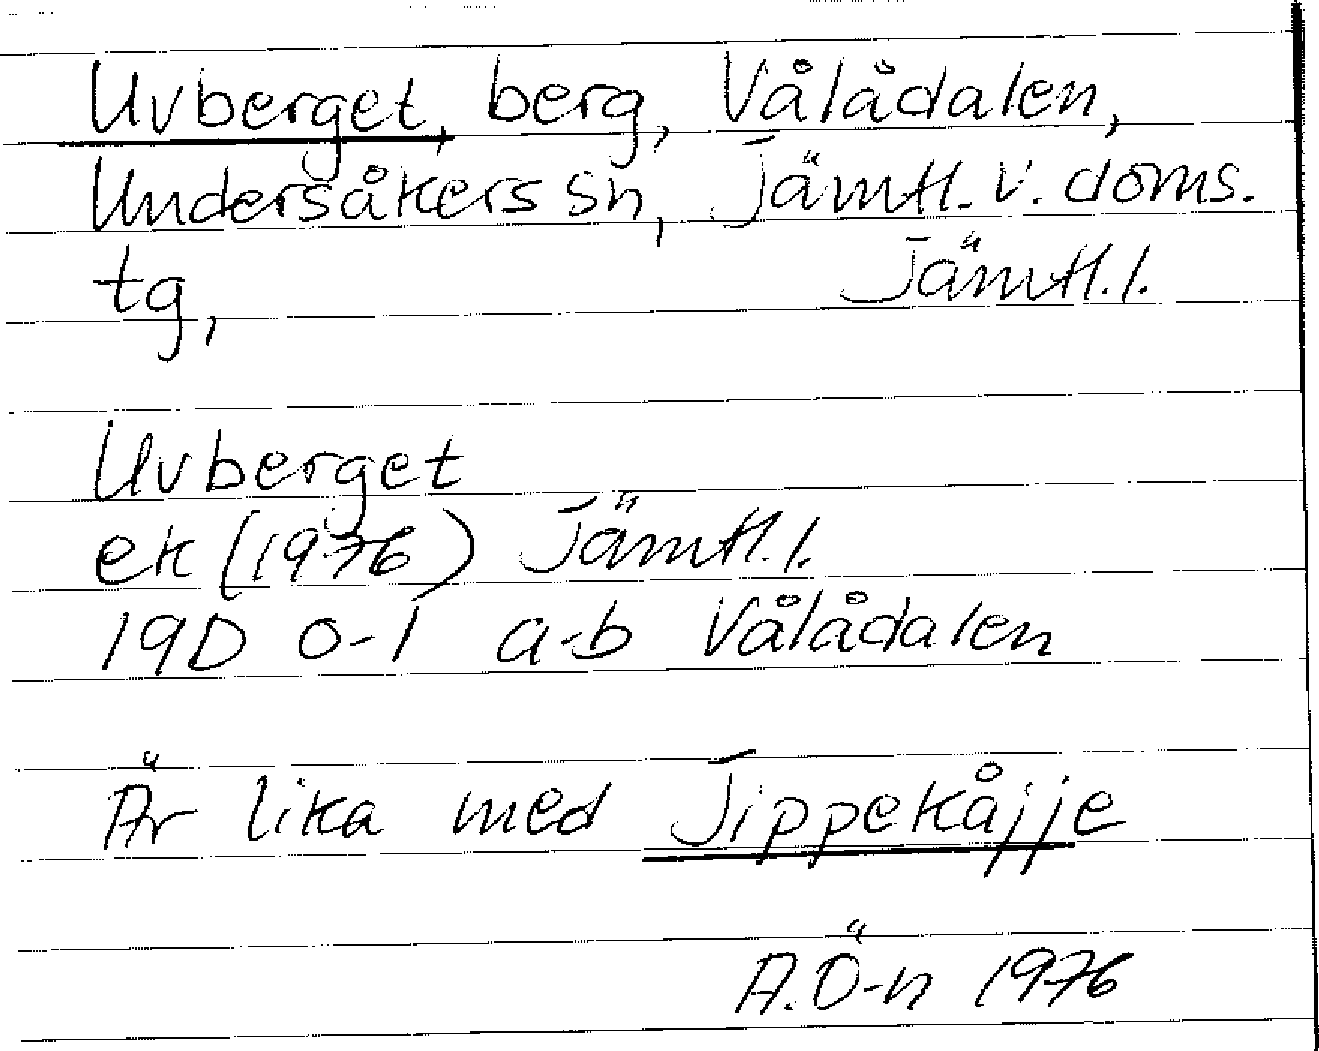 Uvberget, berg, Vålådalen,
Undersåkers sn, Jämtl. v. doms.
tg, Jämtl. l.
Uvberget
ek (1976) Jämtl. l.
19D 0-1 a-b Vålådalen
Är lika med Jippekåjje
A.Ö-n 1976